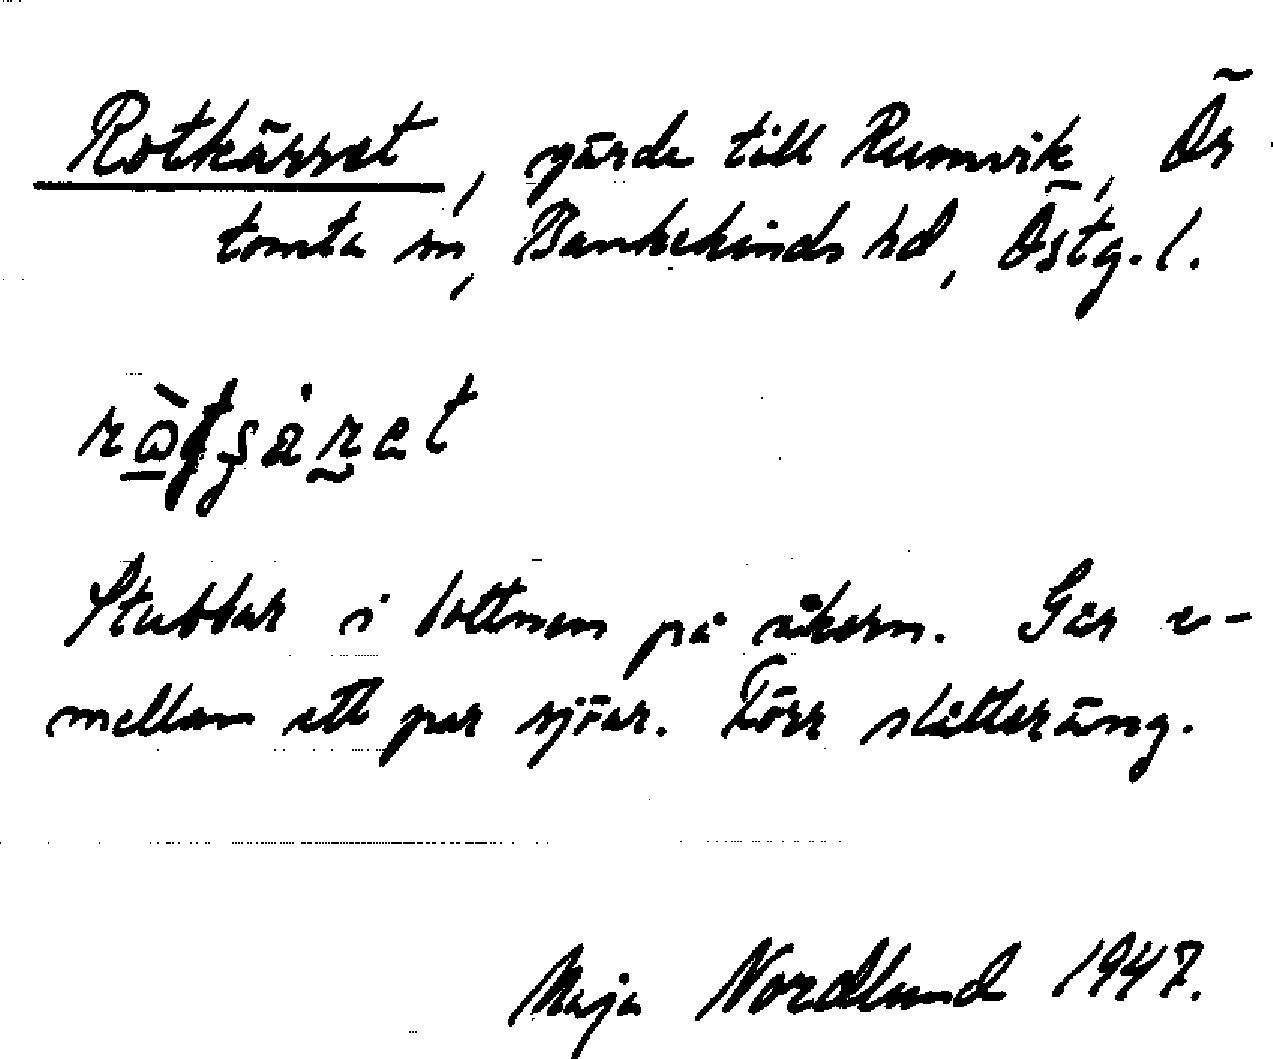 Rotkärret, gärde till Rumvik, Ör
tomta sn, Bankekinds hd, Östg. l.
Stubbar i bottnen på åkern. Går e-
mellan ett par sjöar. Förr slåtteräng.
Maja Nordlund 1947.